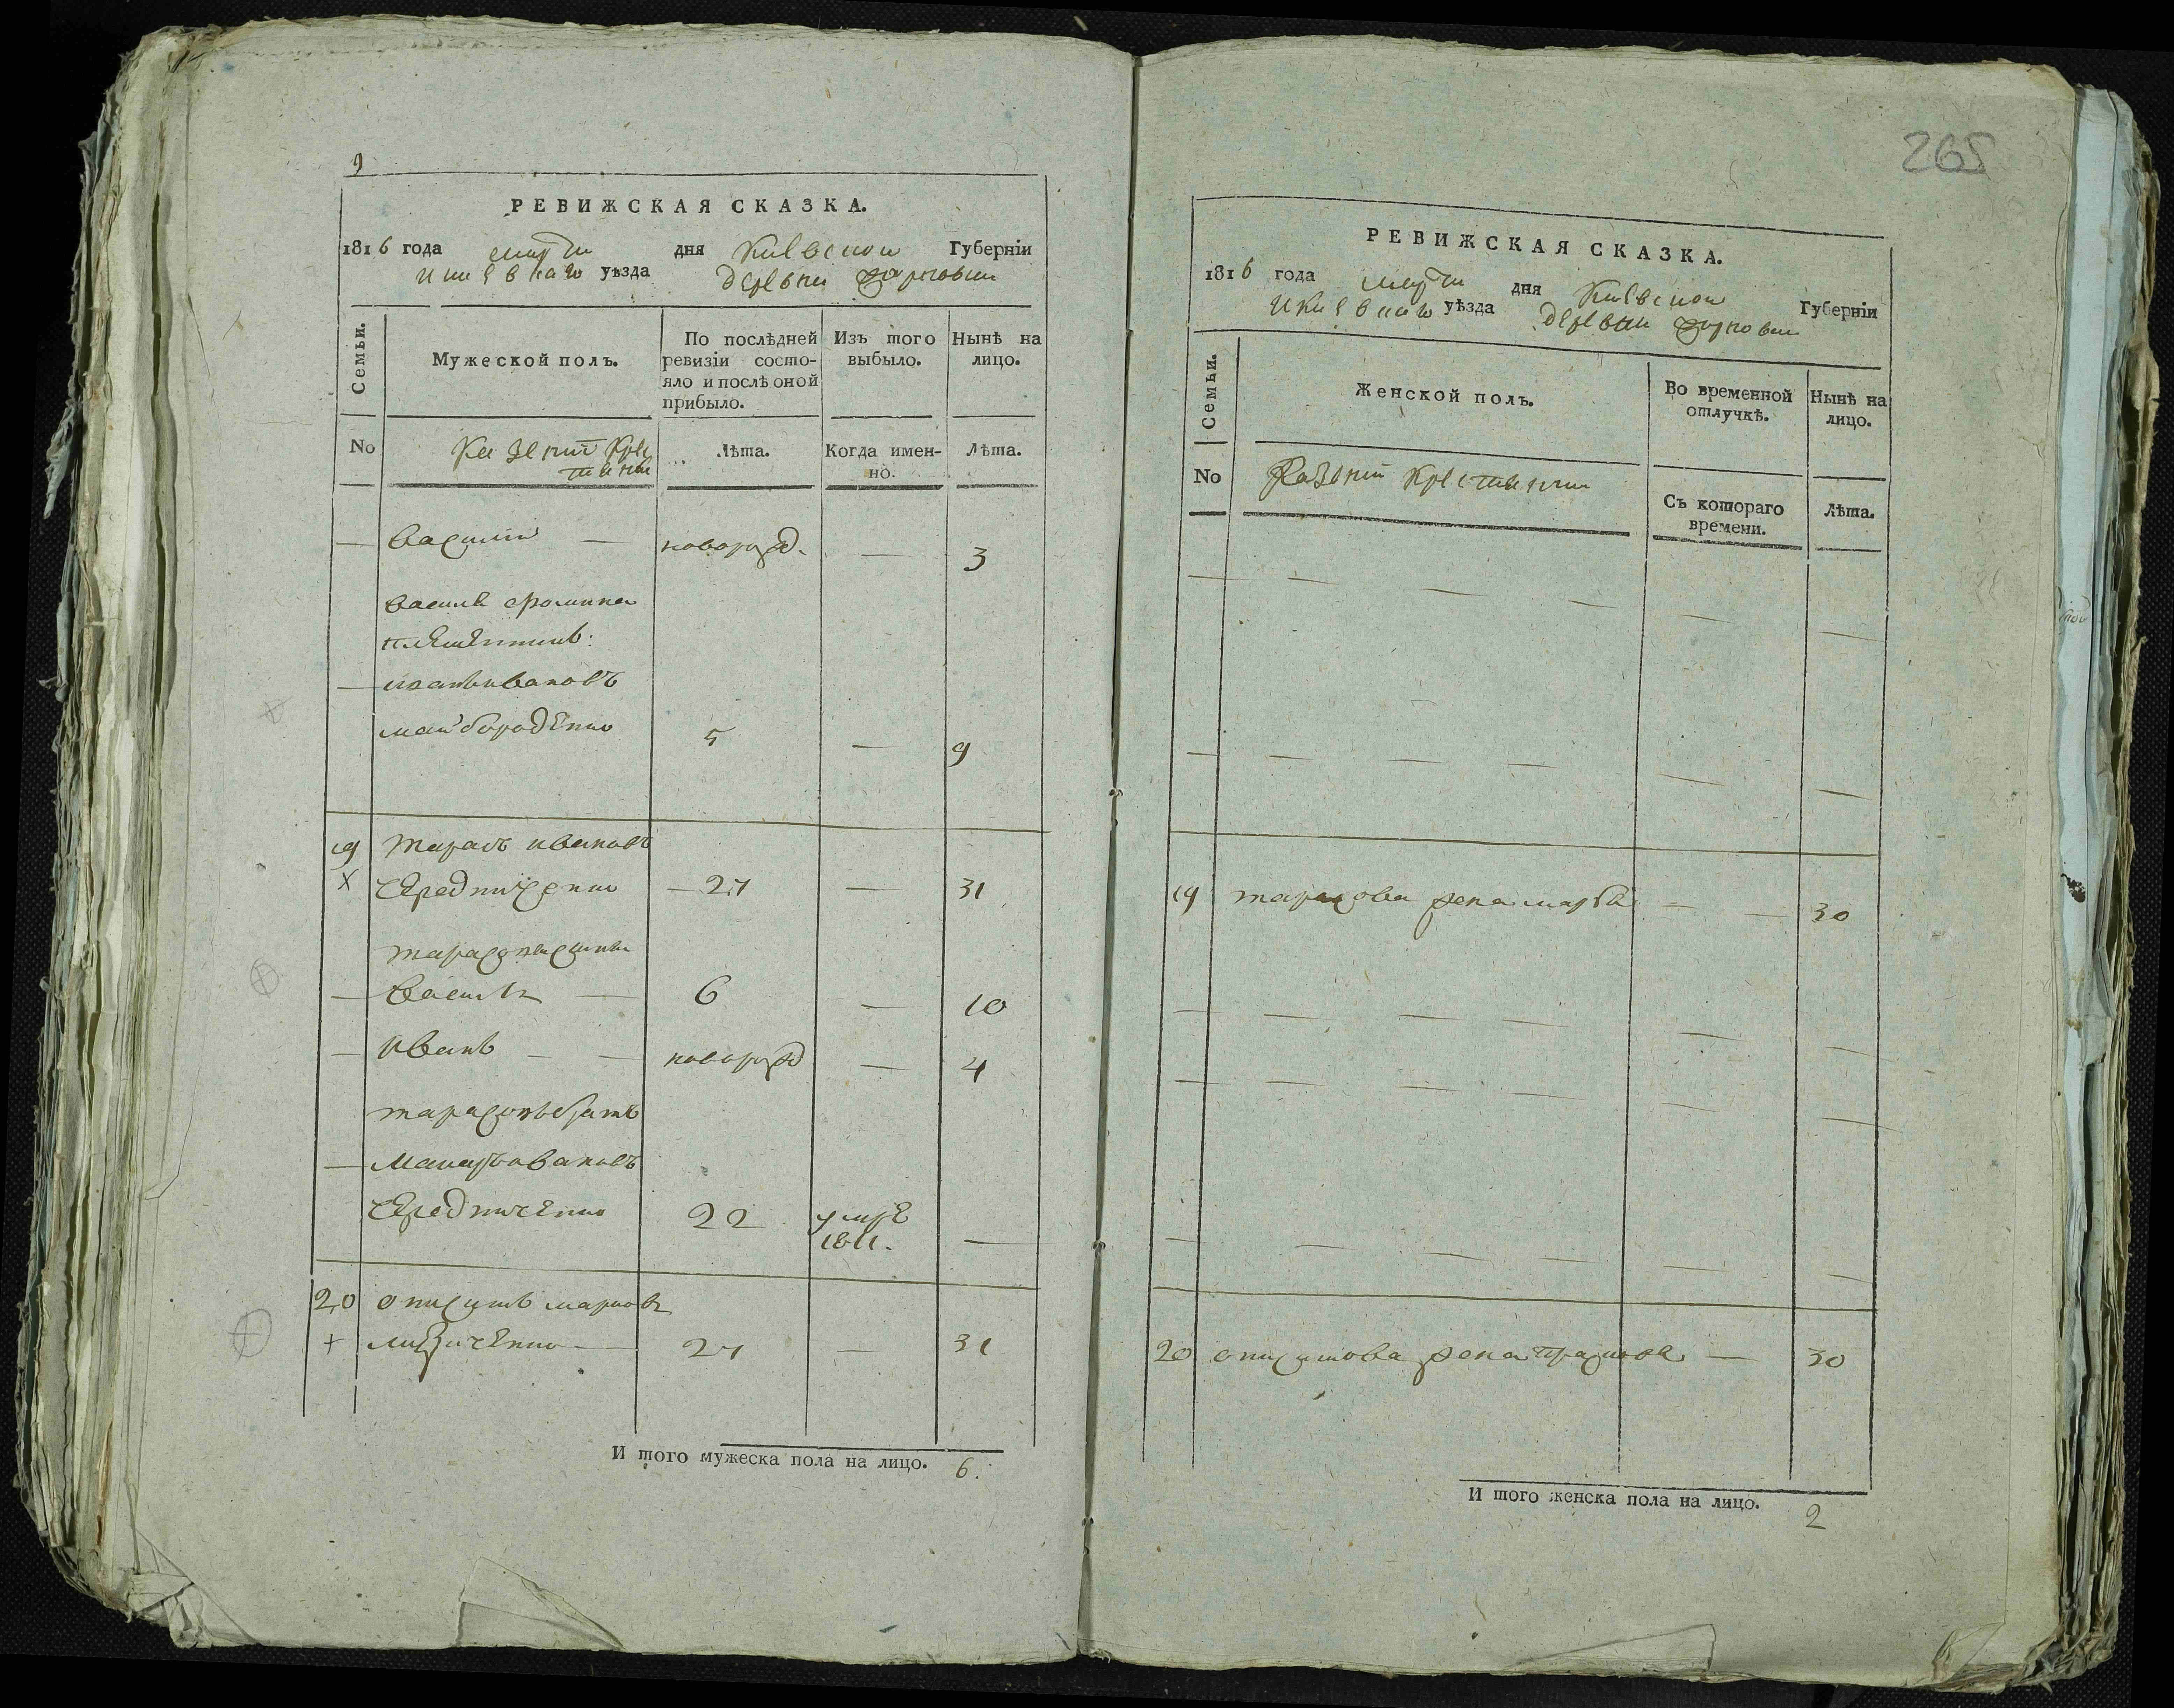 9
РЕВИЖСКАЯ СКАЗКА.
1816 года марта дня Киевской Губерніи
И Киевнаго уѣзда деревни Жорновки
Семьи.
Мужеской полъ.
По послѣдней ревизіи состо-
яло и послѣ оной
прибыло.
Изъ того
выбыло.
Нынѣ на
лицо.
No
Казенніи Крес
тяни
Лѣта.
Когда имен-
но.
Лѣта.
— Василій — новорожд. — 3
василя
племенникъ.
— иванъ ивановъ
майбороденко 5 — 9
19 Тарасъ ивановъ
X Чередниченко — 27 — 31
Тарасови сини
— Василь — 6 — 10
— иванъ — — новорожд — 4
тарасовъ братъ
— Макаръ ивановъ
Чередниченко 22 умре
1811. —
20 онисимъ марковъ
+ 27 — 31
И того мужеска пола на лицо. 6.
265
РЕВИЖСКАЯ СКАЗКА.
1816 года марта дня Киевской Губерніи
И Киевнаго уѣзда деревни Жорновки
Семьи.
Женской полъ.
Во временной
отлучкѣ.
Нынѣ на
лицо.
No
Казенніи Крестянки
Съ котораго
времени.
Лѣта.
19 тарасова жена марья — — 30
20 онисимова жена — 30
И того женска пола на лицо. 2